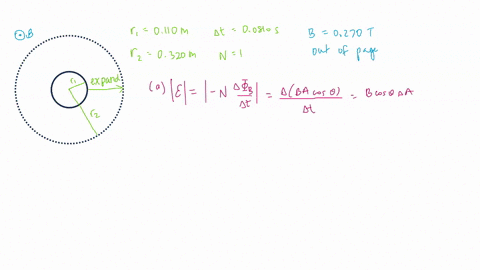 B
r₁ = 0.110 m Δt = 0.0810 s B = 0.270 T
r₂ = 0.320 m N = 1 out of page
r₁ expand
r₂
(a) |ε| = |-N ΔΦB/Δt| = Δ(BA cos θ)/Δt = B cos θ ΔA